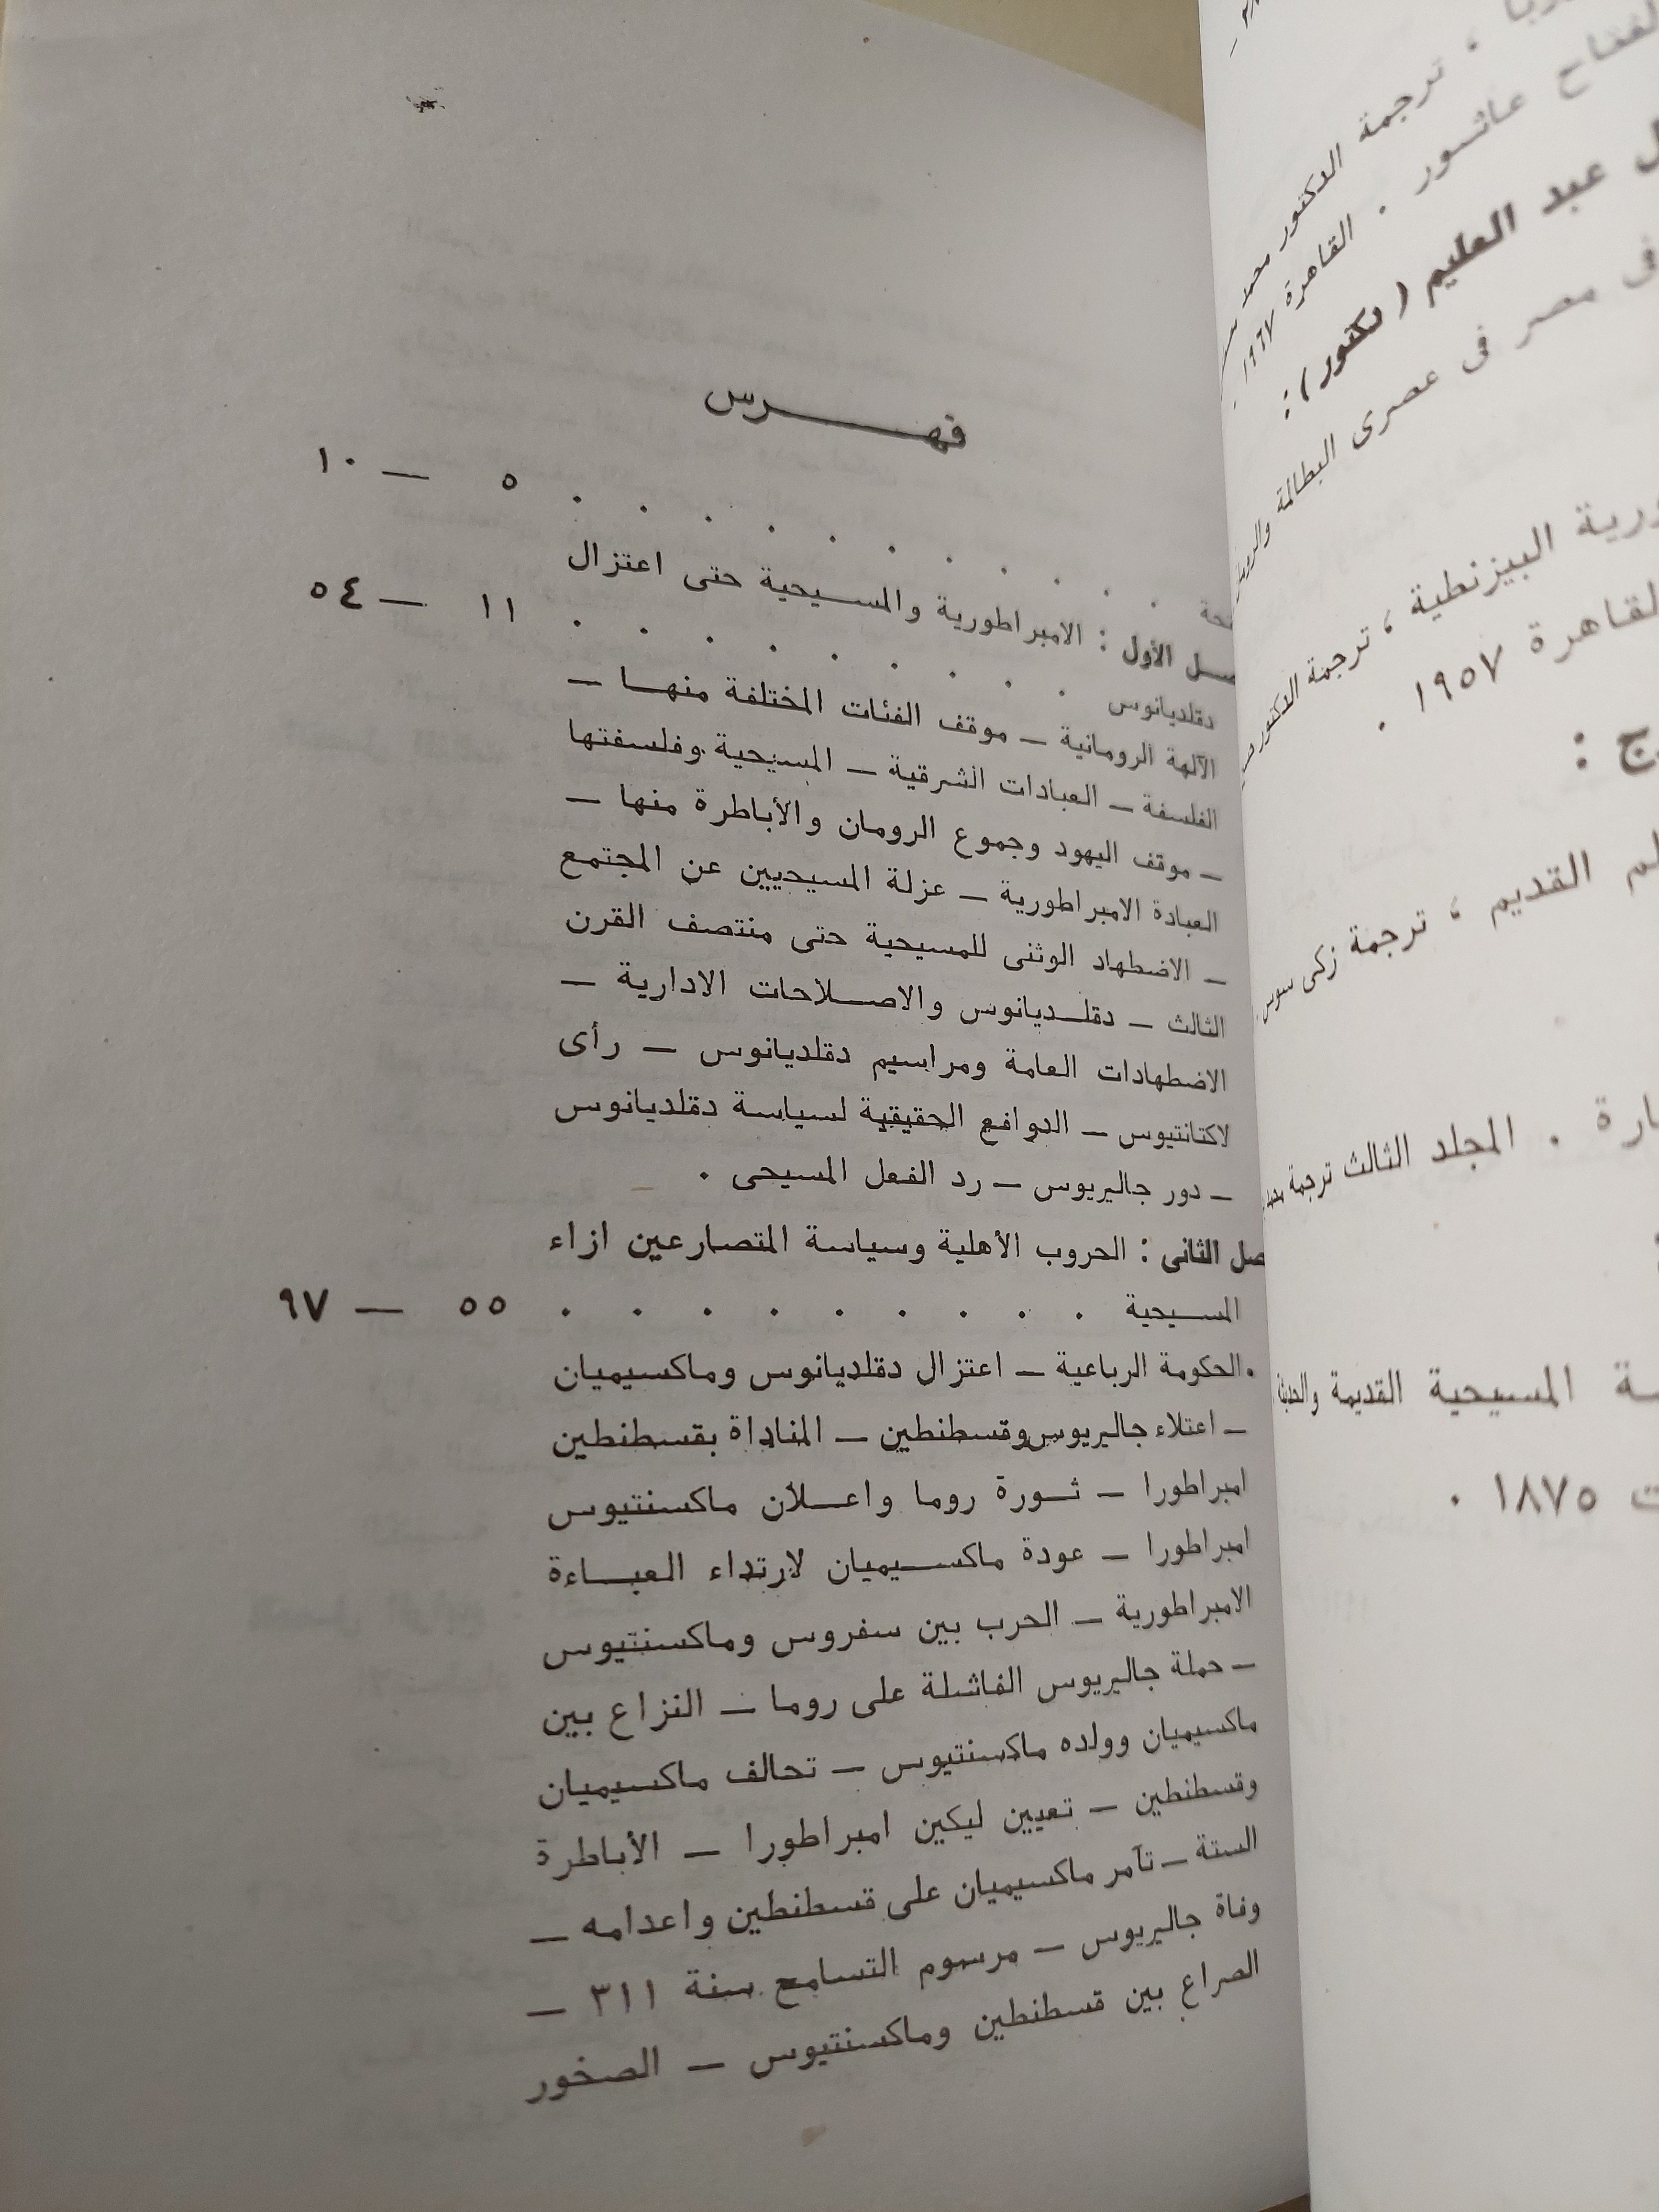 فهرس
حة . . . . . . . . . . ٥ — ١٠
ـل الأول : الامبراطورية والمسيحية حتى اعتزال
دقلديانوس . . . . . . . . ١١ — ٥٤
الآلهة الرومانية — موقف الفئات المختلفة منها —
الفلسفة — العبادات الشرقية — المسيحية وفلسفتها
— موقف اليهود وجموع الرومان والأباطرة منها —
العبادة الامبراطورية — عزلة المسيحيين عن المجتمع
— الاضطهاد الوثنى للمسيحية حتى منتصف القرن
الثالث — دقلديانوس والاصلاحات الادارية —
الاضطهادات العامة ومراسيم دقلديانوس — رأى
لاكتانتيوس — الدوافع الحقيقية لسياسة دقلديانوس
— دور جاليريوس — رد الفعل المسيحى .
صل الثانى : الحروب الأهلية وسياسة المتصارعين ازاء
المسيحية . . . . . . . . . ٥٥ — ٩٧
الحكومة الرباعية — اعتزال دقلديانوس وماكسيميان
— اعتلاء جاليريوس وقسطنطين — المناداة بقسطنطين
امبراطورا — ثورة روما واعلان ماكسنتيوس
امبراطورا — عودة ماكسيميان لارتداء العباءة
الامبراطورية — الحرب بين سفروس وماكسنتيوس
— حملة جاليريوس الفاشلة على روما — النزاع بين
ماكسيميان وولده ماكسنتيوس — تحالف ماكسيميان
وقسطنطين — تعيين ليكين امبراطورا — الأباطرة
الستة — تآمر ماكسيميان على قسطنطين واعدامه —
وفاة جاليريوس — مرسوم التسامح سنة ٣١١ —
الصراع بين قسطنطين وماكسنتيوس — الصخور
، ترجمة الدكتور محمد
عاشور . القاهرة ١٩٦٧ .
عبد العليم (دكتور) :
مصر فى عصرى البطالمة
البيزنطية ، ترجمة الدكتور
القاهرة ١٩٥٧ .
ج :
القديم ، ترجمة زكى سوس
ارة . المجلد الثالث ترجمة محمد
ـة المسيحية القديمة
ت ١٨٧٥ .